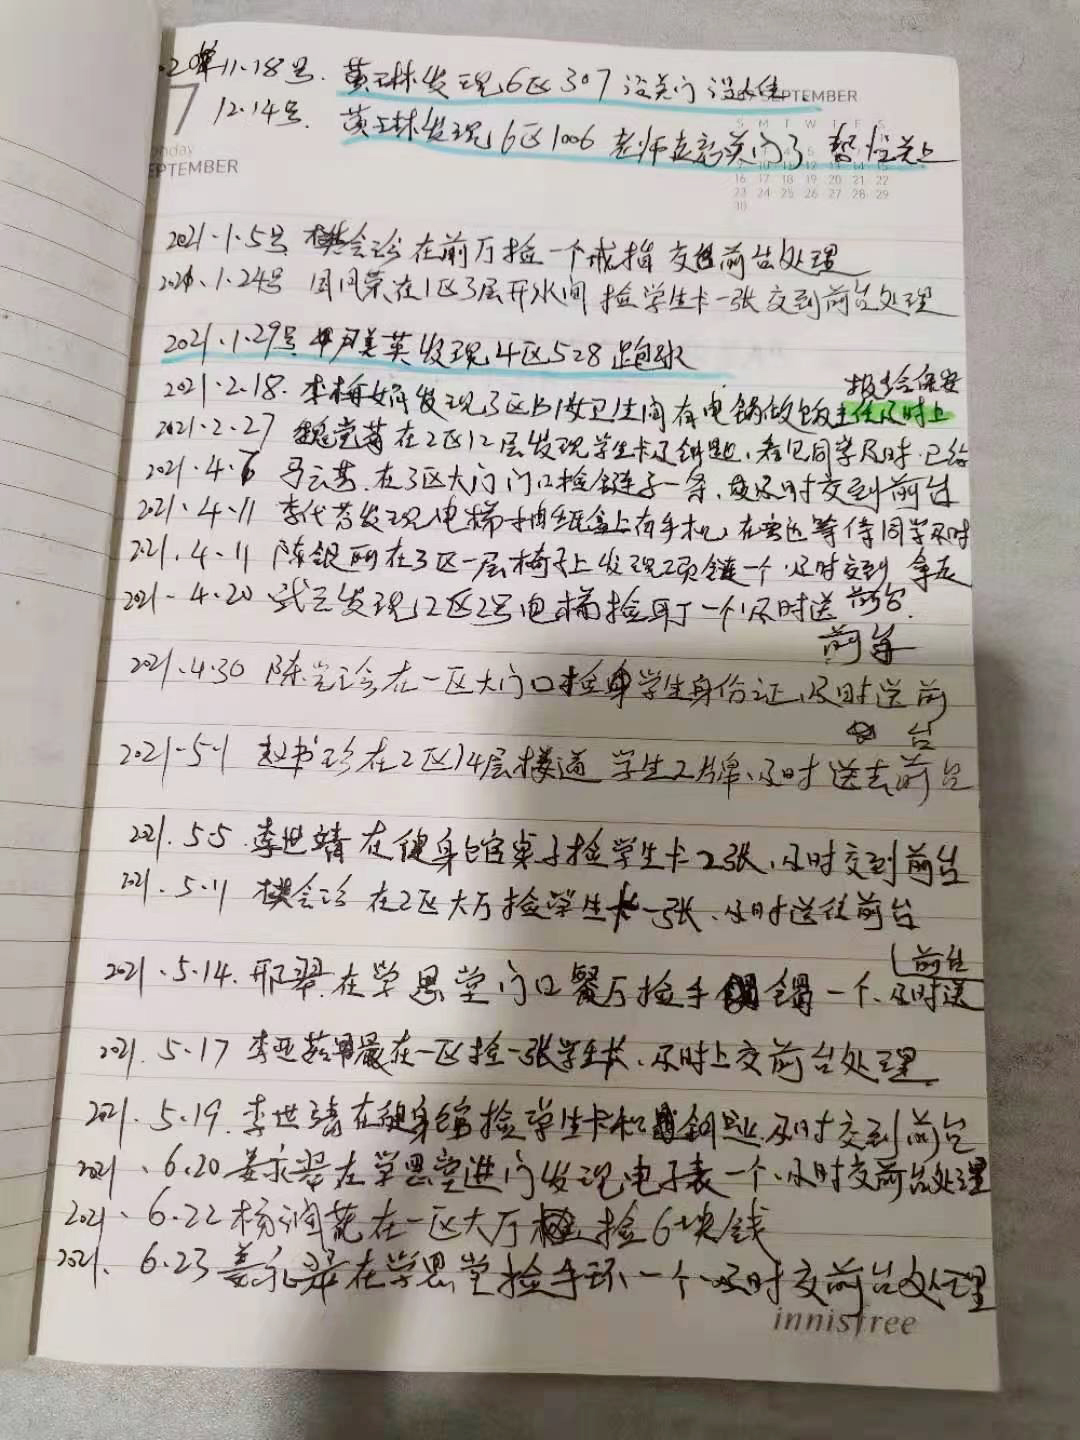 11.18号. 黄玉林发现6区307没关门没人住.
SEPTEMBER
7
12.14号. 黄玉林发现6区1006老师走忘关门了 帮忙关上
S M T W T F S
16 17 18 19 20 21 22
23 24 25 26 27 28 29
30
SEPTEMBER
2021.1.5号 樊会珍在前厅捡一个戒指交到前台处理
2021.1.24号 闫风荣在1区3层开水间捡学生卡一张交到前台处理
2021.1.29号 美英发现4区528跑水
报告给保安
2021.2.18. 李梅娟发现3区B1女卫生间有电锅做饭主任及时上
2021.2.27 在2区12层发现学生卡及钥匙,看见同学及时已给
2021.4.6 马云芬.在3区大门门口捡链子一条,及时交到前台
2021.4.11 李代芬发现电梯抽纸盒上有手机,在旁边等待同学及时
2021.4.11 陈银丽在3区一层椅子上发现项链一个.及时交到 拿走
2021.4.20 武云发现2区2号电梯捡耳丁一个,及时送前台.
前台
2021.4.30 陈会珍在一区大门口捡学生身份证,及时送前
台
2021.5.1 赵书珍在2区14层楼道 学生工牌、及时送去前台
2021.5.5 李世靖在健身馆桌子捡学生卡2张、及时交到前台
2021.5.11 樊会珍在2区大厅捡学生卡一张、及时送往前台
前台
2021.5.14. 邢翠在学思堂门口餐厅捡手镯一个、及时送
2021.5.17 李亚在一区捡一张学生卡,及时上交前台处理.
2021.5.19.李世靖在健身馆捡学生卡和钥匙,及时交到前台
2021.6.20 姜永翠在学思堂进门发现电子表一个.及时交前台处理
2021.6.22 杨润花在一区大厅捡6块钱
2021.6.23 姜永翠在学思堂捡手环一个、及时交前台处理
innisfree